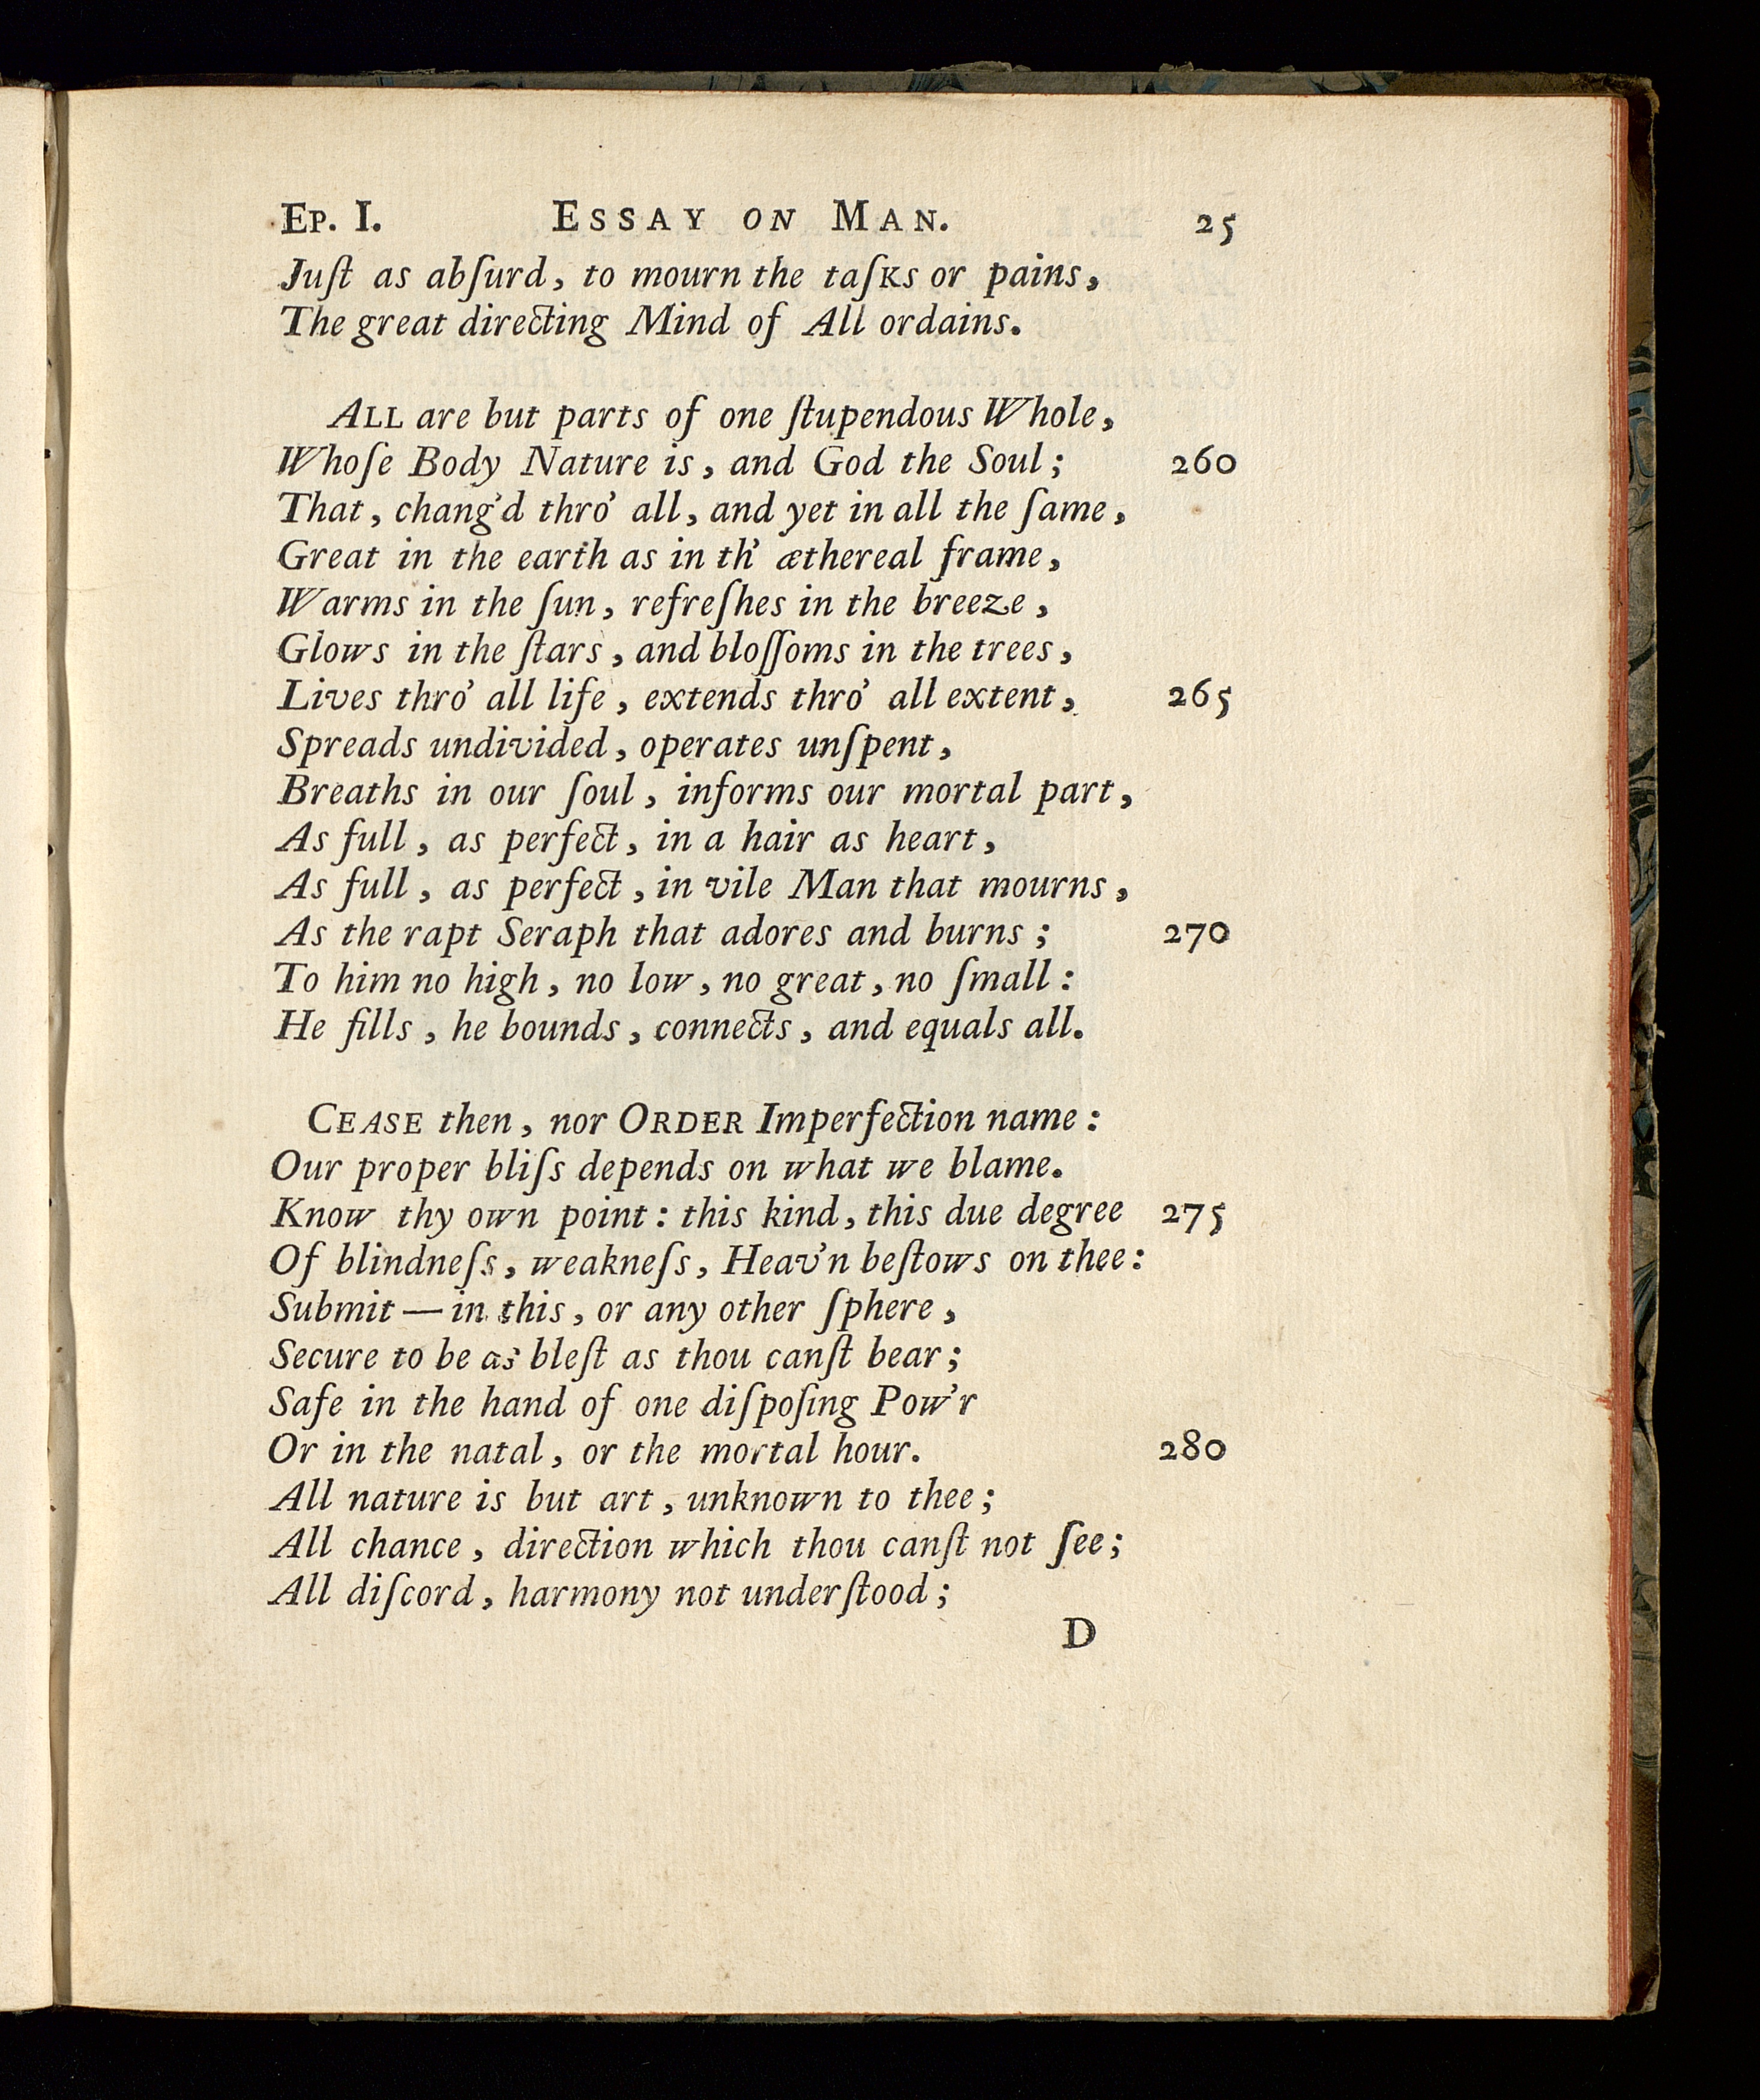 Ep. I. Essay on Man. 25
Juſt as abſurd, to mourn the taſKs or pains,
The great directing Mind of All ordains.
All are but parts of one ſtupendous Whole,
Whoſe Body Nature is, and God the Soul; 260
That, chang'd thro' all, and yet in all the ſame,
Great in the earth as in th' æthereal frame,
Warms in the ſun, refreſhes in the breeze,
Glows in the ſtars, and bloſſoms in the trees,
Lives thro' all life, extends thro' all extent, 265
Spreads undivided, operates unſpent,
Breaths in our ſoul, informs our mortal part,
As full, as perfect, in a hair as heart,
As full, as perfect, in vile Man that mourns,
As the rapt Seraph that adores and burns; 270
To him no high, no low, no great, no ſmall:
He fills, he bounds, connects, and equals all.
CEASE then, nor ORDER Imperfection name:
Our proper bliſs depends on what we blame.
Know thy own point: this kind, this due degree 275
Of blindneſs, weakneſs, Heav'n beſtows on thee:
Submit — in this, or any other ſphere,
Secure to be as bleſt as thou canſt bear;
Safe in the hand of one diſpoſing Pow'r
Or in the natal, or the mortal hour. 280
All nature is but art, unknown to thee;
All chance, direction which thou canſt not ſee;
All diſcord, harmony not underſtood;
D